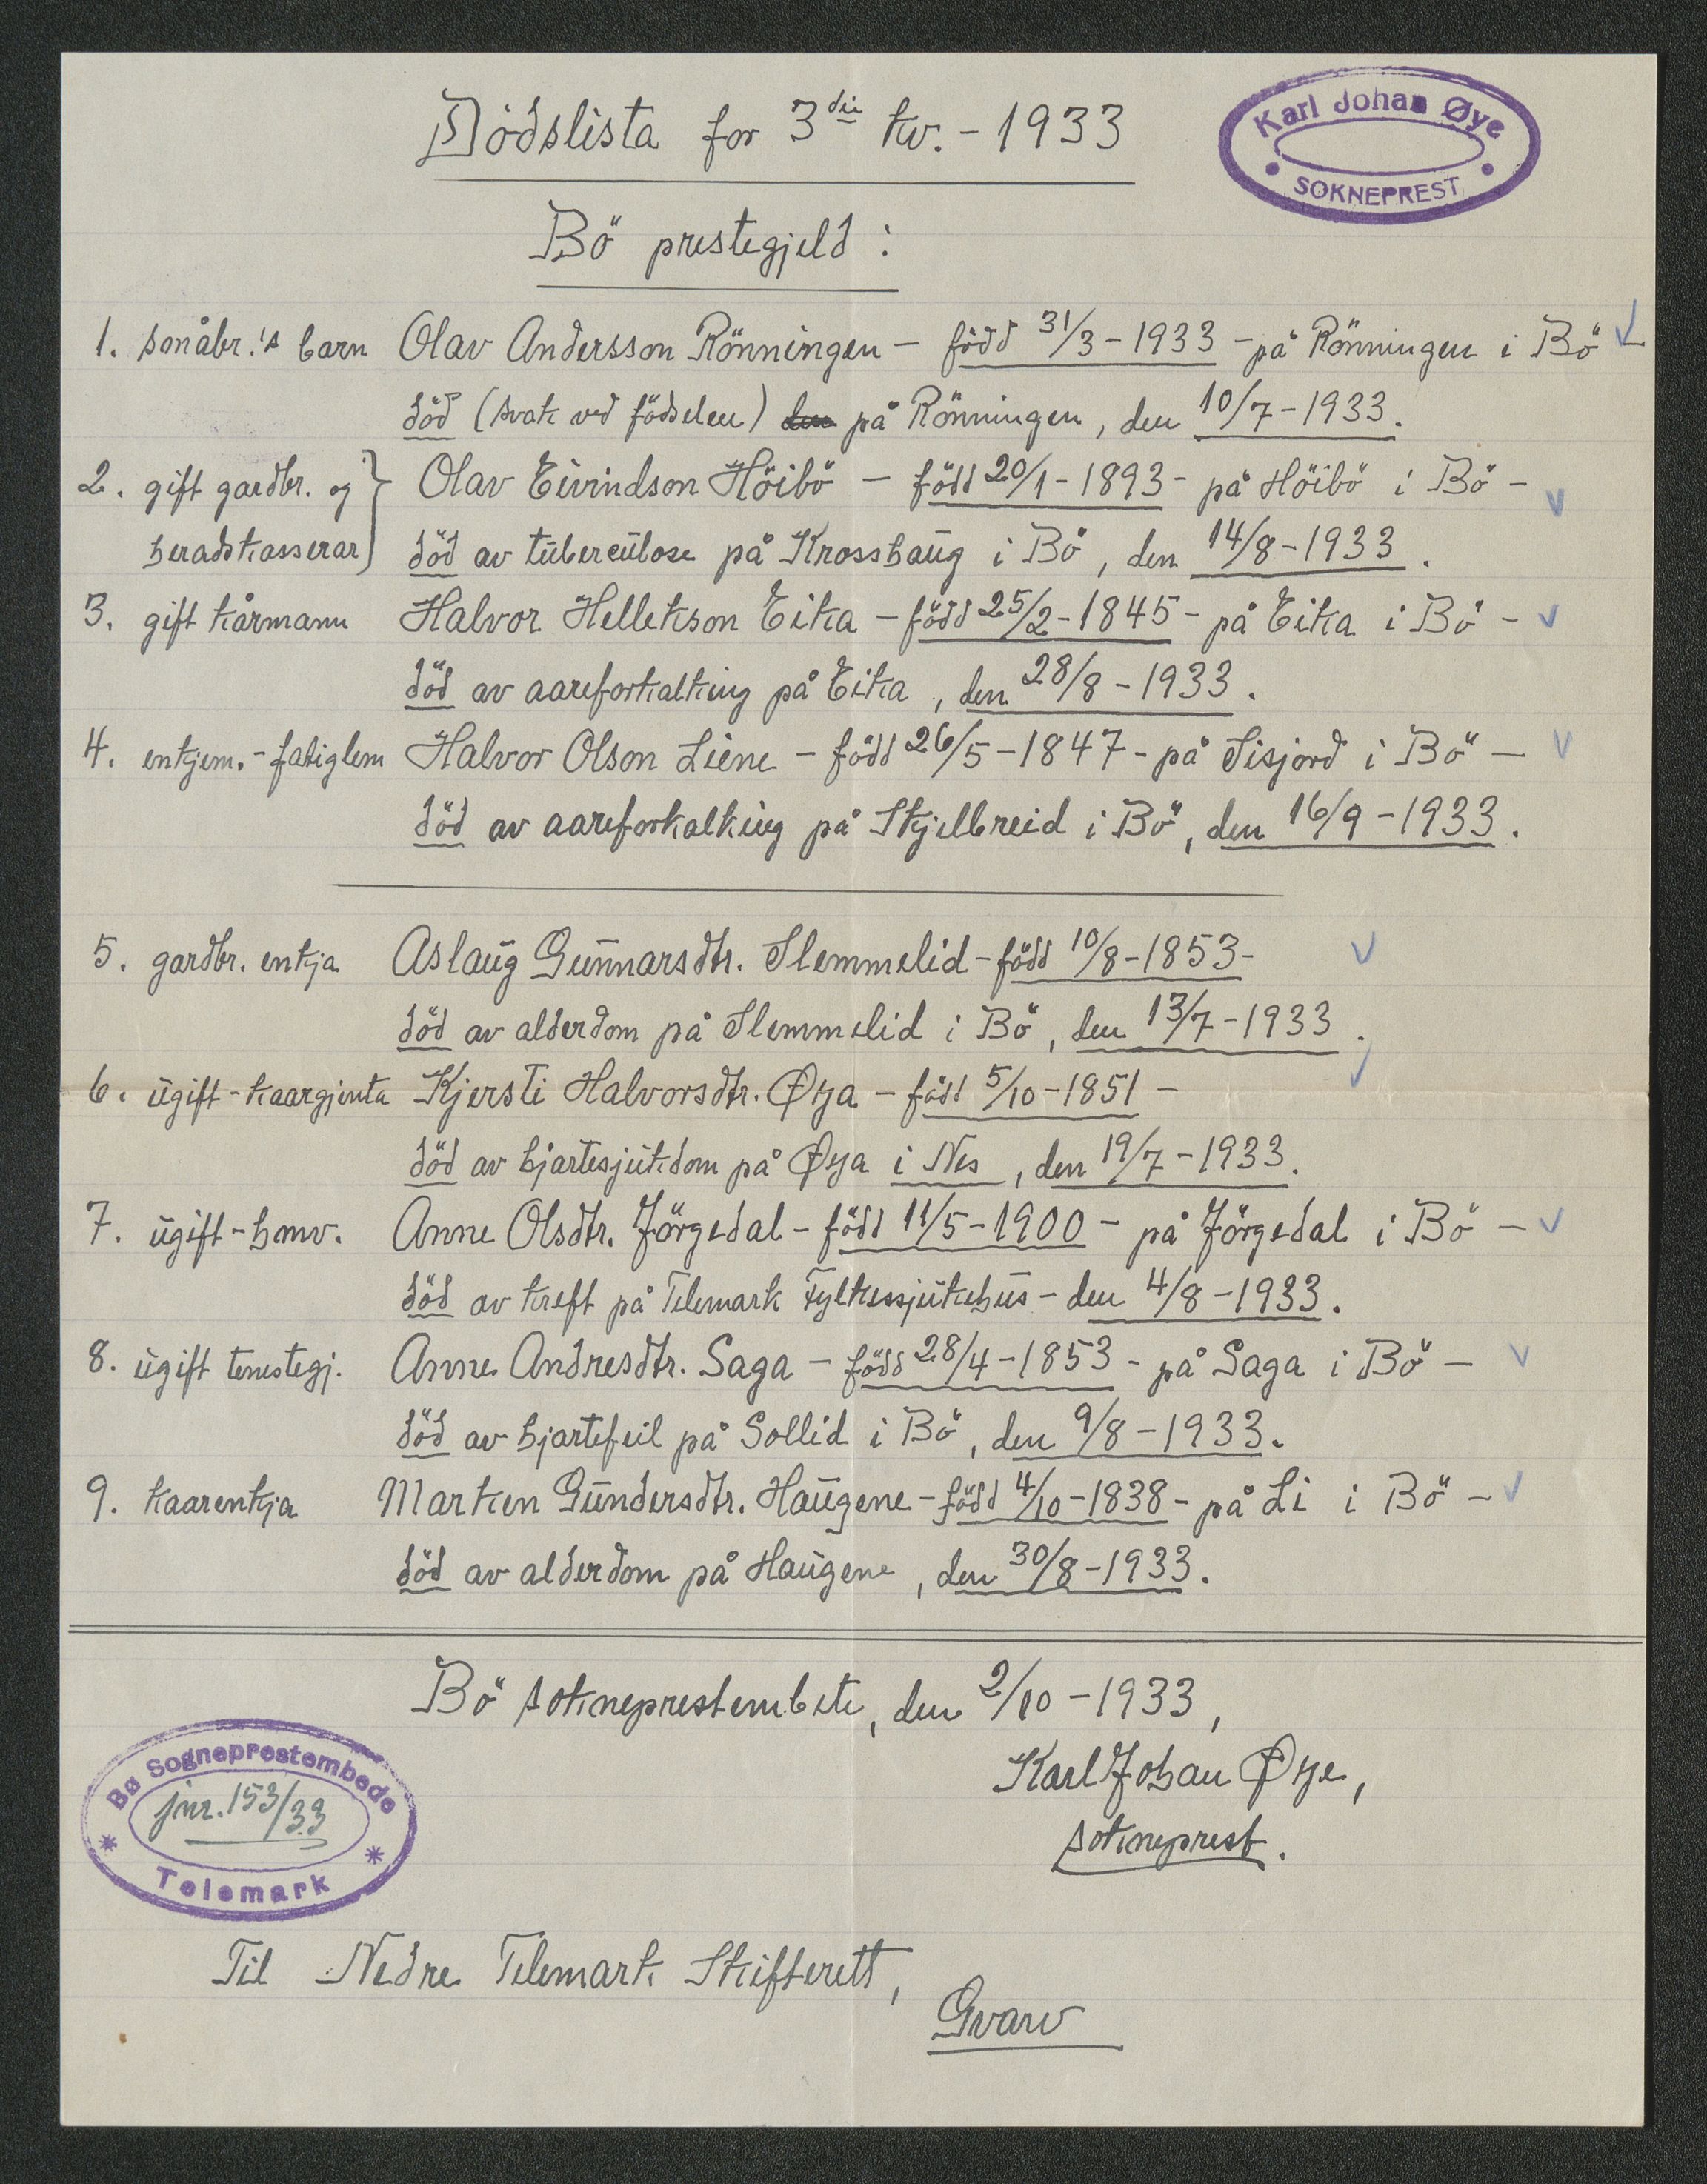 Dödslista for 3die kv. - 1933
Karl Johan Øye
SOKNEPREST
Bö prestegjeld :
1. småbr.'s barn Olav Andersson Rönningen - född 31/3 - 1933 - på Rönningen i Bö
död (svak ved födselen) den på Rönningen, den 10/7 - 1933.
2. gift gardbr. og Olav Eivindson Höibö - född 20/1 - 1893 - på Höibö i Bö -
heradskasserar död av tuberculose på Krosshaug i Bö, den 14/8 - 1933.
3. gift kårmann Halvor Hellekson Eika - född 25/2 - 1845 - på Eika i Bö -
död av aareforkalking på Eika, den 28/8 - 1933.
4. enkjem. - fatiglem Halvor Olson Liene - född 26/5 - 1847 - på Sisjord i Bö -
död av aareforkalking på Skjelbreid i Bö, den 16/9 - 1933.
5. gardbr. enkja Aslaug Gunnarsdtr. Slemmelid - född 10/8 - 1853 -
död av alderdom på Slemmelid i Bö, den 13/7 - 1933.
6. ugift - kaargjenta Kjersti Halvorsdtr. Øya - född 5/10 - 1851 -
död av hjartesjukdom på Øya i Nes, den 19/7 - 1933.
7. ugift - hmv. Anne Olsdtr. Jörgedal - född 11/5 - 1900 - på Jörgedal i Bö -
död av kreft på Telemark Fylkessjukehus - den 4/8 - 1933.
8. ugift tenestegj. Anne Andresdtr. Saga - född 28/4 - 1853 - på Saga i Bö -
död av hjartefeil på Sollid i Bö, den 9/8 - 1933.
9. kaarenkja Marken Gundersdtr. Haugene - född 4/10 - 1838 - på Li i Bö -
död av alderdom på Haugene, den 30/8 - 1933.
Bö sokneprestembete, den 2/10 - 1933,
Karl Johan Øye,
sokneprest.
Bø Sogneprestembede
jnr. 153/33
Telemark
Til Nedre Telemark Skifterett,
Gvarv